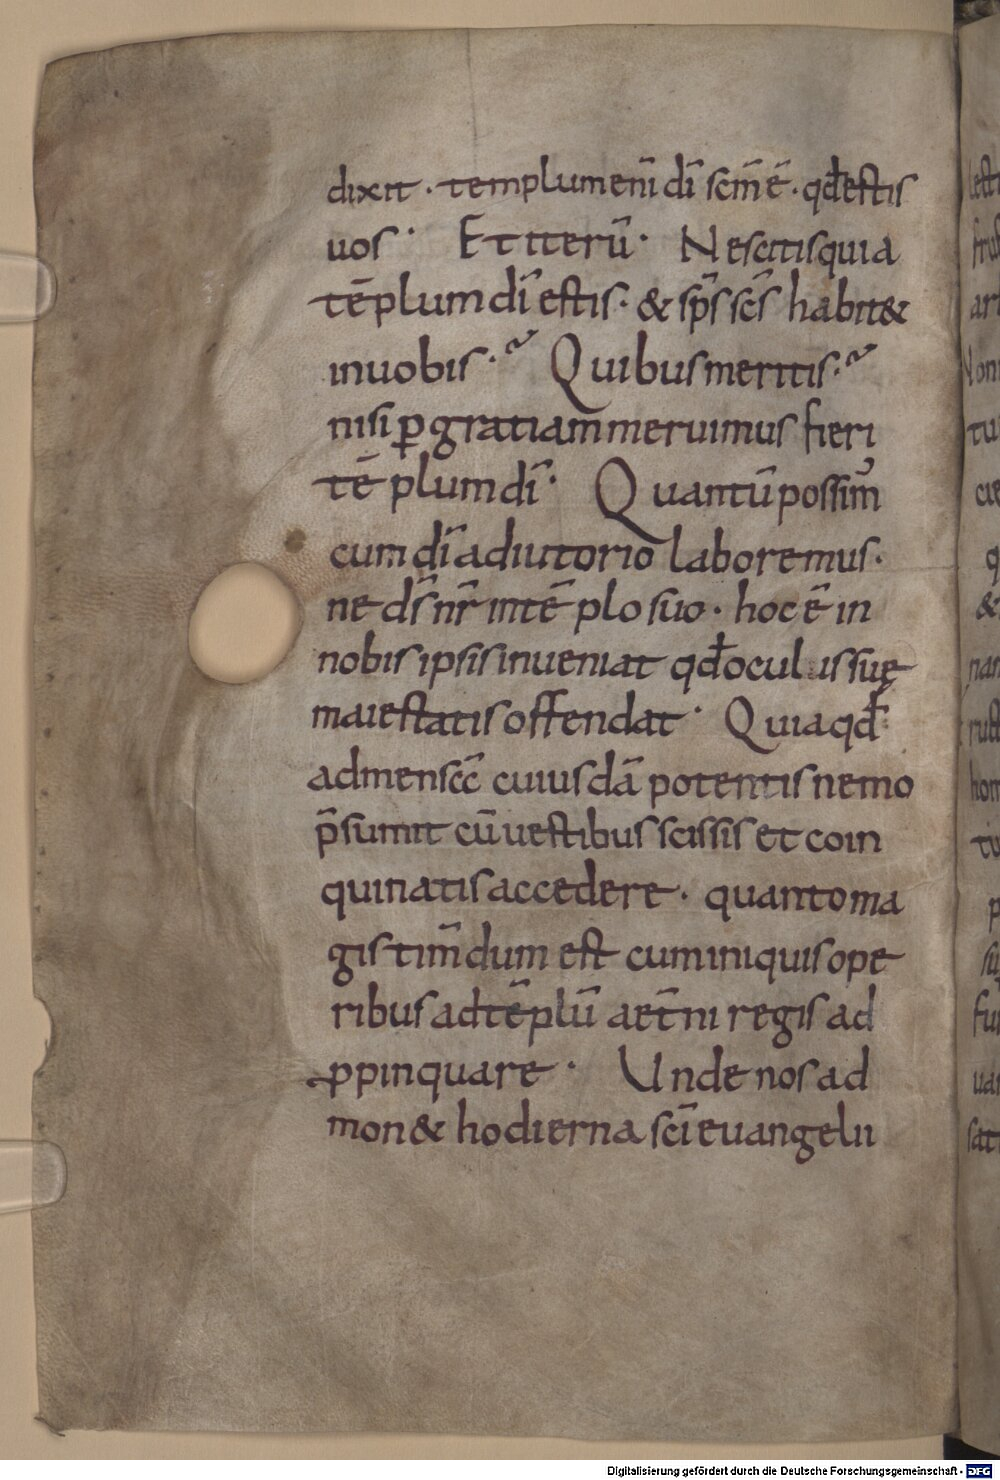 dixit · templum eni̅ di̅ scm̅ e̅ · qđ estis
uos · Et iteru̅ · Nescitis quia
te̅plum di̅ estis · & sp̅s sc̅s habit&
in uobis · Quibus meritis ·
nisi ꝑ gratiam meruimus fieri
te̅plum di̅ · Quantu̅ possim᷒
cum di̅ adiutorio laboremus ·
ne ds̅ nr̅ in te̅plo suo · hoc e̅ in
nobis ipsis inueniat qđ oculis suę
maiestatis offendat · Quia qđ
ad mensc̅c̅ cuiusda̅ potentis nemo
p̅sumit cu̅ uestibus scissis et coin
quinatis accedere · quanto ma
gis tim̅dum est cum iniquis ope
ribus ad te̅plu̅ aet̅ni regis ad
ꝓpinquare · Unde nos ad
mon& hodierna sci̅ euangelii
Digitalisierung gefördert durch die Deutsche Forschungsgemeinschaft - DFG